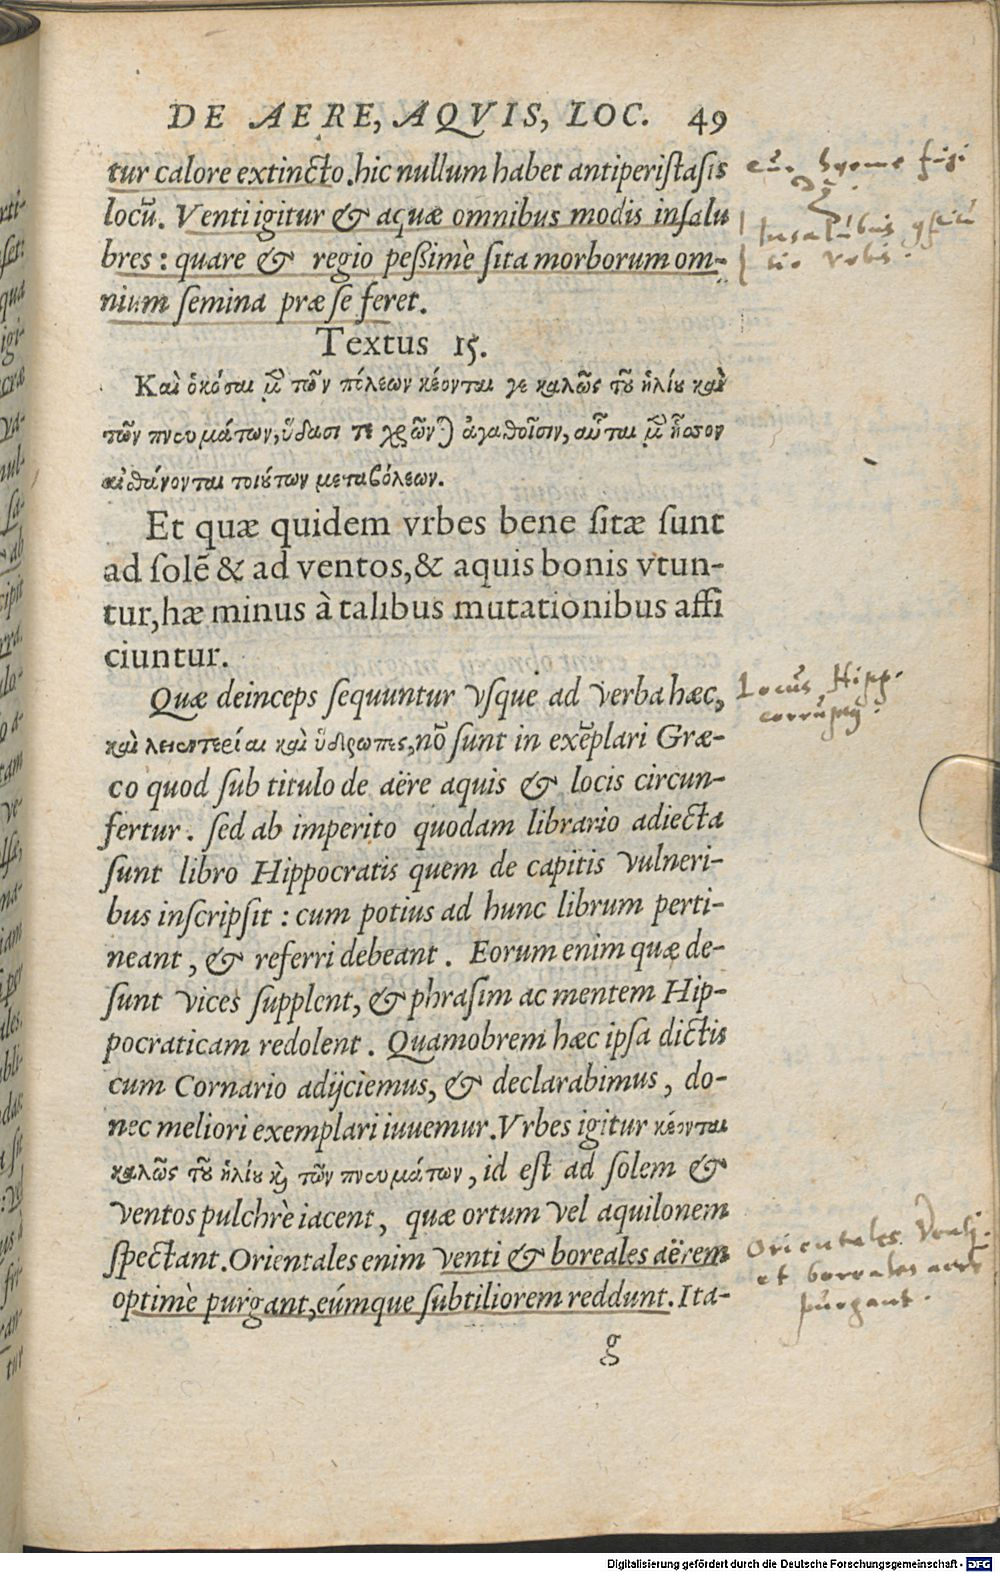 DE AERE, AQVIS, LOC. 49
tur calore extincto. hic nullum habet antiperistasis
locũ. Venti igitur & aquæ omnibus modis insalu
bres : quare & regio peßimè sita morborum om-
nium semina præ se feret.
Textus 15.
Καὶ ὁκόσαι μ̃ὲν τῶν πόλεων κέονται γε καλῶς τοῦ ἡλίου καὶ
τῶν πνευμάτων, ὕδασί τε χρῶνται ἀγαθοῖσιν, αὗται μὲν ἧσσον
αἰσθάνονται τοιούτων μεταβόλεων.
Et quæ quidem vrbes bene sitæ sunt
ad solẽ & ad ventos, & aquis bonis vtun-
tur, hæ minus à talibus mutationibus affi
ciuntur.
Quæ deinceps sequuntur vsque ad verba hæc,
καὶ λειεντερίαι καὶ ὕδρωπες, nõ sunt in exẽplari Græ-
co quod sub titulo de aëre aquis & locis circun-
fertur. sed ab imperito quodam librario adiecta
sunt libro Hippocratis quem de capitis vulneri-
bus inscripsit : cum potius ad hunc librum perti-
neant, & referri debeant. Eorum enim quæ de-
sunt vices supplent, & phrasim ac mentem Hip-
pocraticam redolent. Quamobrem hæc ipsa dictis
cum Cornario adijciemus, & declarabimus, do-
nec meliori exemplari iuuemur. Vrbes igitur κέονται
καλῶς τοῦ ἡλίου καὶ τῶν πνευμάτων, id est ad solem &
ventos pulchrè iacent, quæ ortum vel aquilonem
spectant. Orientales enim venti & boreales aërem
optimè purgant, eúmque subtiliorem reddunt. Ita-
g
Insalubris
vrbis.
Locus Hipp.
corruptus.
Orientales Venti
et boreales aere
purgant.
Digitalisierung gefördert durch die Deutsche Forschungsgemeinschaft - DFG